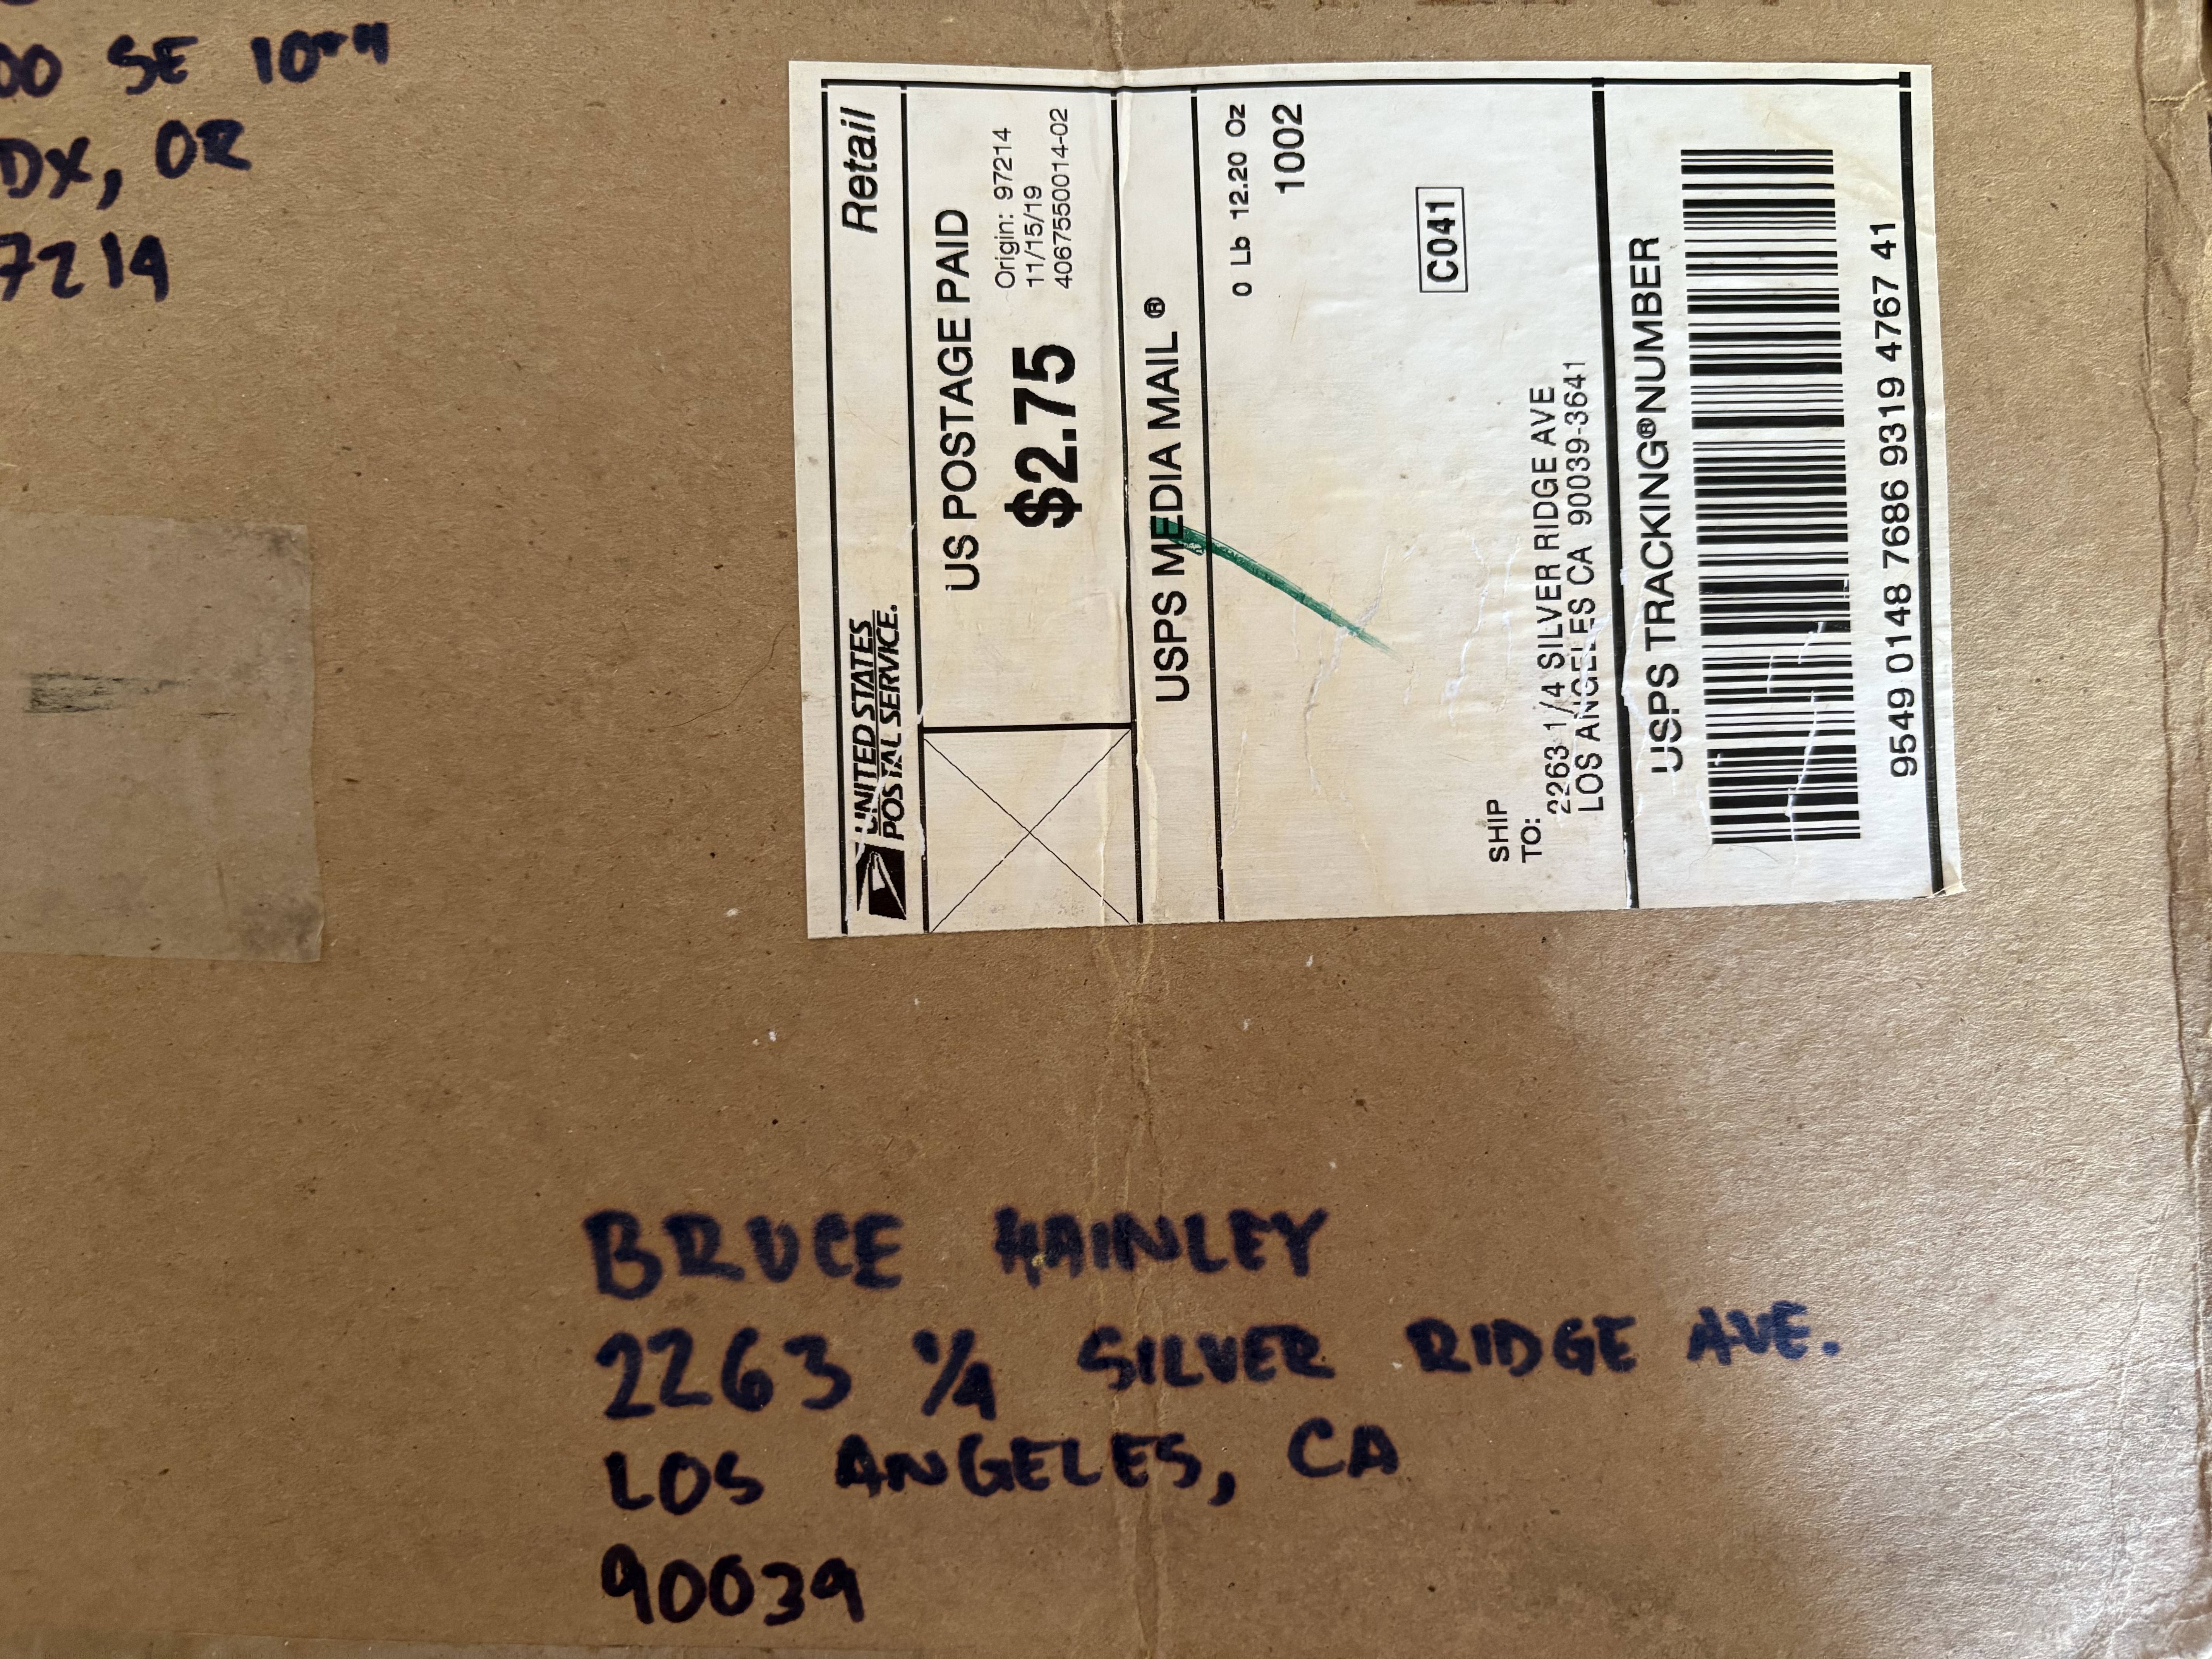 00 SE 10th
DX, OR
7214
UNITED STATES
POSTAL SERVICE.
Retail
US POSTAGE PAID
$2.75
Origin: 97214
11/15/19
4067550014-02
USPS MEDIA MAIL ®
0 Lb 12.20 Oz
1002
C041
SHIP
TO:
2263 1/4 SILVER RIDGE AVE
LOS ANGELES CA 90039-3641
USPS TRACKING® NUMBER
9549 0148 7686 9319 4767 41
BRUCE HAINLEY
2263 1/4 SILVER RIDGE AVE.
LOS ANGELES, CA
90039